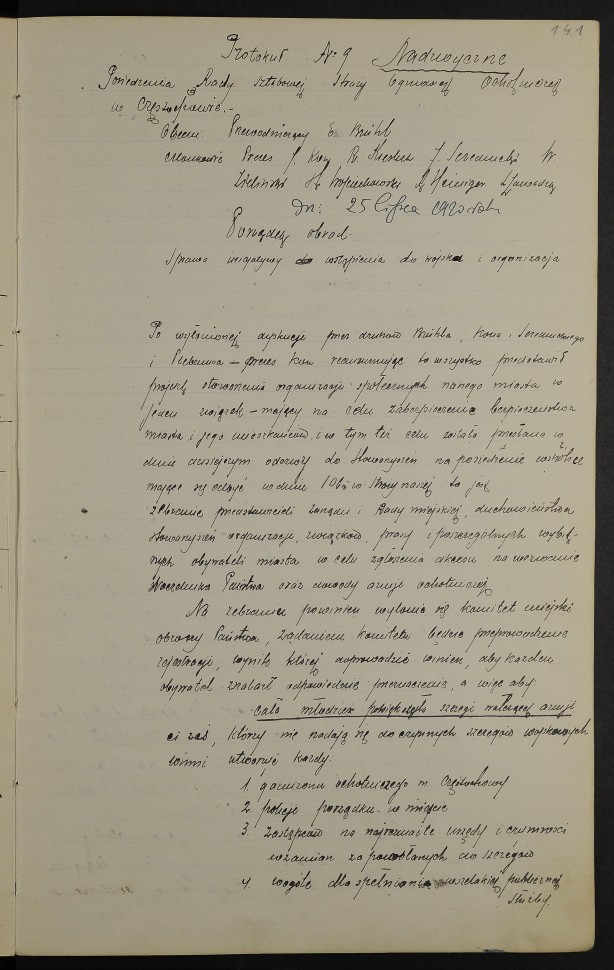 141
Protokuł № 9 Nadzwyczajne
Posiedzenia Rady Sztabowej Straży Ogniowej Ochotniczej
w Częstochowie.-
Obecni: Przewodniczący E. Brühl
Członkowie Prezes J. Kon R.
Zieliński St. Wojciechowski Heiniger
dn: 25 Lipca 1920 roku
Porządek obrad:
Sprawa inicjatywy do wstąpienia do wojska i organizacja
Po wyłonionej dyskusji przez druhów Brühla, Kona i
i Plebanka - prezes Kon reasumując to wszystko przedstawił
projekt stworzenia organizacji społecznych naszego miasta w
jeden związek - mający na celu zabezpieczenie bezpieczeństwa
miasta i jego mieszkańców i w tym też celu zostały przesłane w
dniu dzisiejszym odezwy do Stowarzyszeń na posiedzenie wspólne
mające się odbyć w dniu w Straży naszej to jest
zebranie przedstawicieli Zarządu i Rady miejskiej, duchowieństwa
Stowarzyszeń organizacji, związków, prasy i poszczególnych wybit-
nych obywateli miasta w celu zgłoszenia akcesu na wezwanie
Naczelnika Państwa oraz dowódcy armji ochotniczej
Na zebraniu powinien wyłonić się komitet miejski
obrony Państwa, zadaniem komitetu będzie przeprowadzenie
rejestracji, wynik której doprowadzić winien, aby każden
obywatel znalazł odpowiednie przeznaczenie, a więc aby:
cała młodzież powiększyła szeregi walczącej armji
ci zaś, którzy nie nadają się do czynnych szeregów wojskowych
winni utworzyć kadry:
1. garnizonu ochotniczego m. Częstochowy
2. policji porządku w mieście
3. zastępców na najrozmaitsze urzędy i czynności
wzamian za powołanych do szeregów
4. wogóle dla spełniania wszelakiej publicznej
służby.